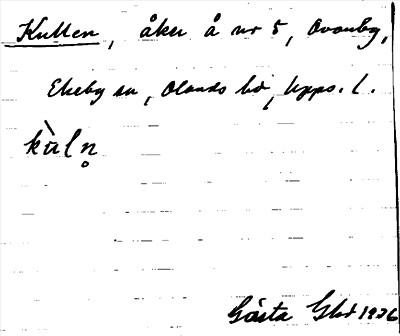 Kullen, åker å nr 5, Ovanby,
Ekeby sn, Olands hd, Upps. l.
kùl n̥
Gösta 1936